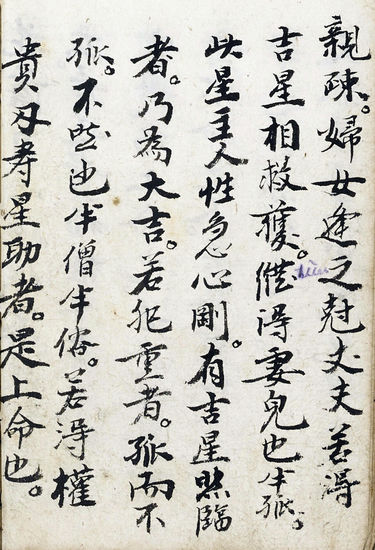 親疎。婦女逢之尅丈夫。若得
吉星相救護。然得妻兒也半孤。
此星主人性急心剛。有吉星照臨
者。乃為大吉。若犯重者。孤而不
孤。不然也半僧半俗。若得權
貴及壽星助者。是上命也。